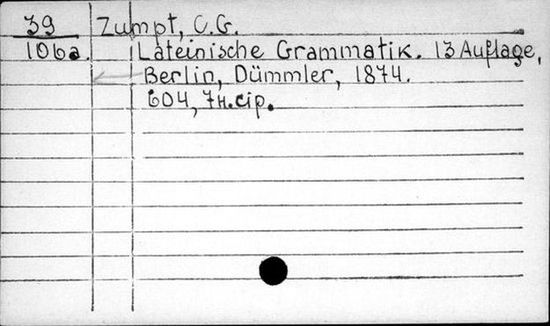 39 Zumpt, C.G.
106a. Lateinische Grammatik. 13 Auflage,
Berlin, Dümmler, 1874.
604, 7н.стр.